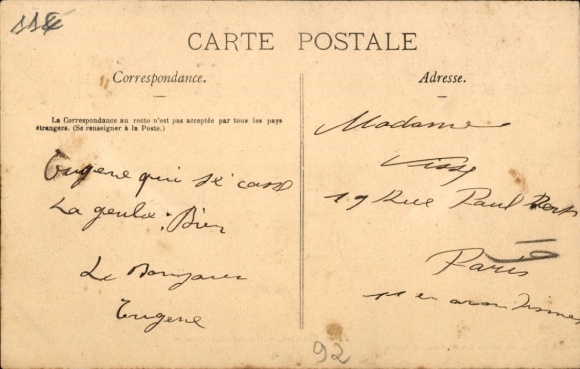 118
CARTE POSTALE
Correspondance.
Adresse.
La Correspondance au recto n'est pas acceptée par tous les pays
étrangers. (Se renseigner à la Poste.)
Eugene qui se casse
La geule. Bien
Le Bonjour
Eugene
Madame
19 Rue Paul Bert
Paris
11 em arondismen
92